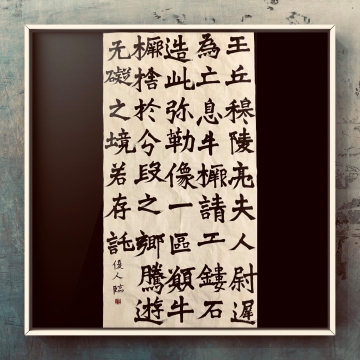 王丘穆陵亮夫人尉遲
為亡息牛橛請工鏤石
造此弥勒像一區願牛
橛捨於分段之鄉騰遊
无礙之境若存託
人臨